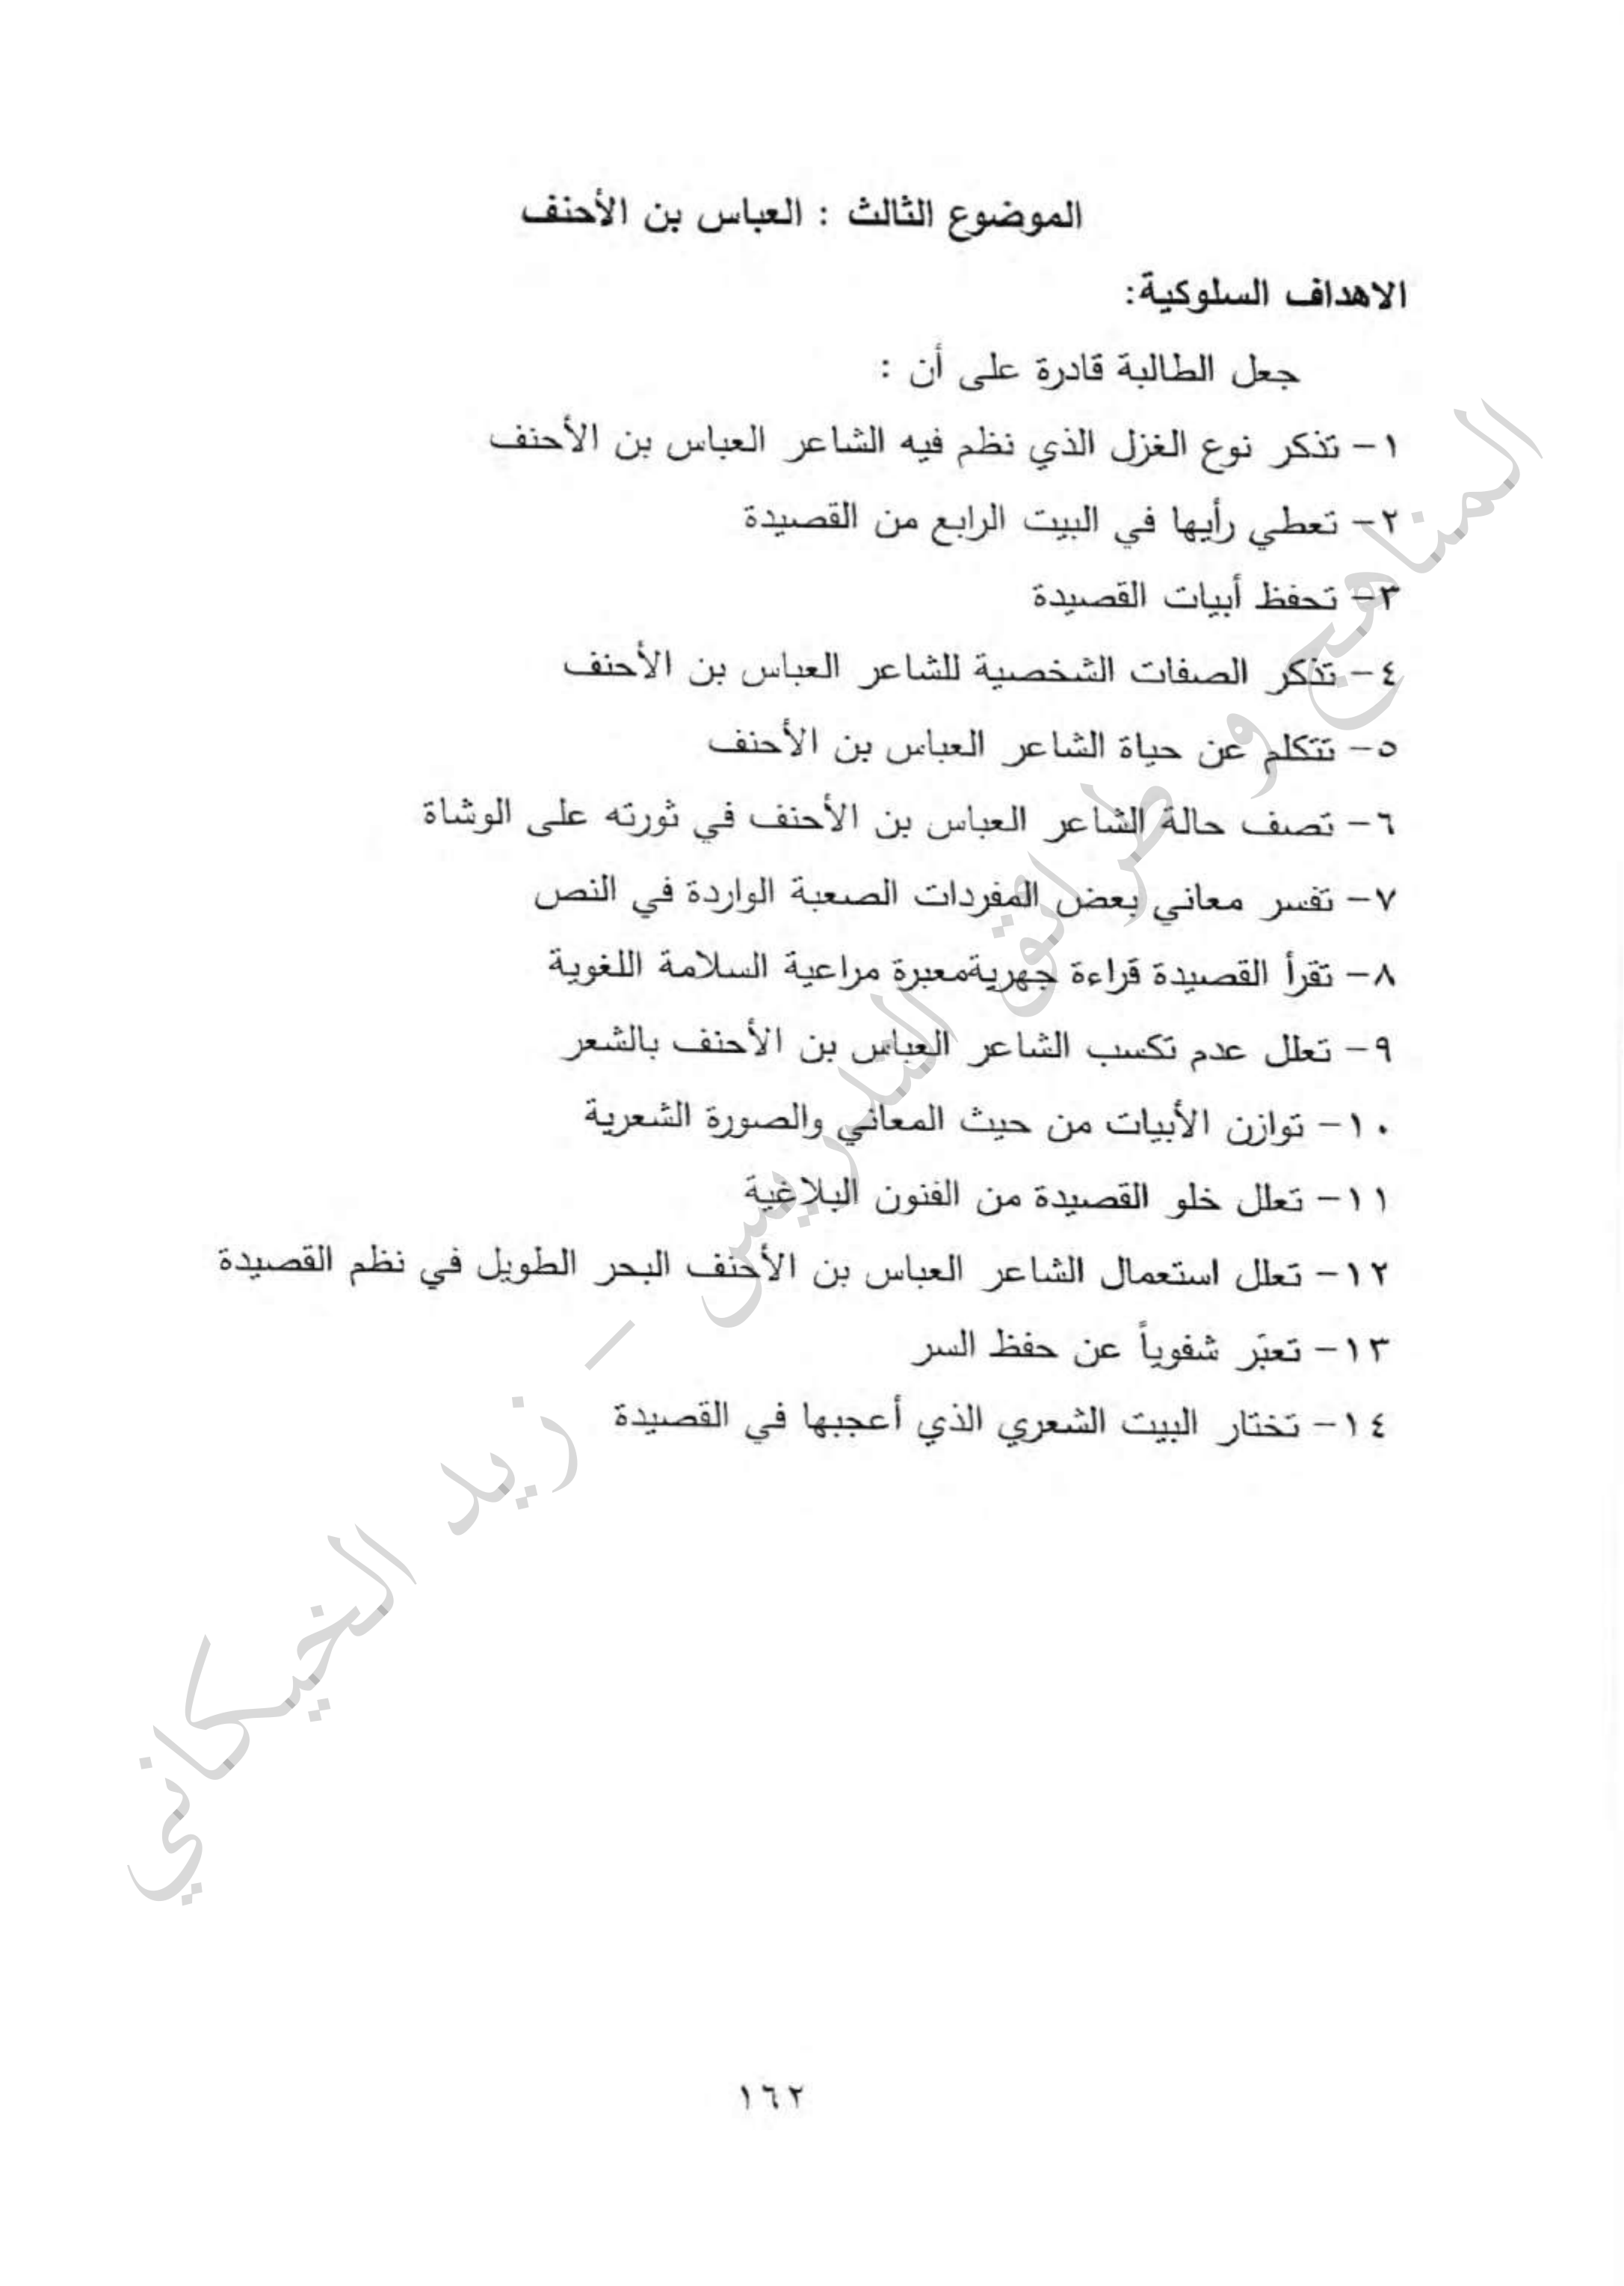 الموضوع الثالث : العباس بن الأحنف
الاهداف السلوكية:
جعل الطالبة قادرة على أن :
١- تذكر نوع الغزل الذي نظم فيه الشاعر العباس بن الأحنف
٢- تعطي رأيها في البيت الرابع من القصيدة
٣- تحفظ أبيات القصيدة
٤- تذكر الصفات الشخصية للشاعر العباس بن الأحنف
٥- تتكلم عن حياة الشاعر العباس بن الأحنف
٦- تصف حالة الشاعر العباس بن الأحنف في ثورته على الوشاة
٧- تفسر معاني بعض المفردات الصعبة الواردة في النص
٨- تقرأ القصيدة قراءة جهريةمعبرة مراعية السلامة اللغوية
٩- تعلل عدم تكسب الشاعر العباس بن الأحنف بالشعر
١٠- توازن الأبيات من حيث المعاني والصورة الشعرية
١١- تعلل خلو القصيدة من الفنون البلاغية
١٢- تعلل استعمال الشاعر العباس بن الأحنف البحر الطويل في نظم القصيدة
١٣- تعبّر شفوياً عن حفظ السر
١٤- تختار البيت الشعري الذي أعجبها في القصيدة
المناهج و طرائق التدريس - زيد الخيكاني
١٦٢